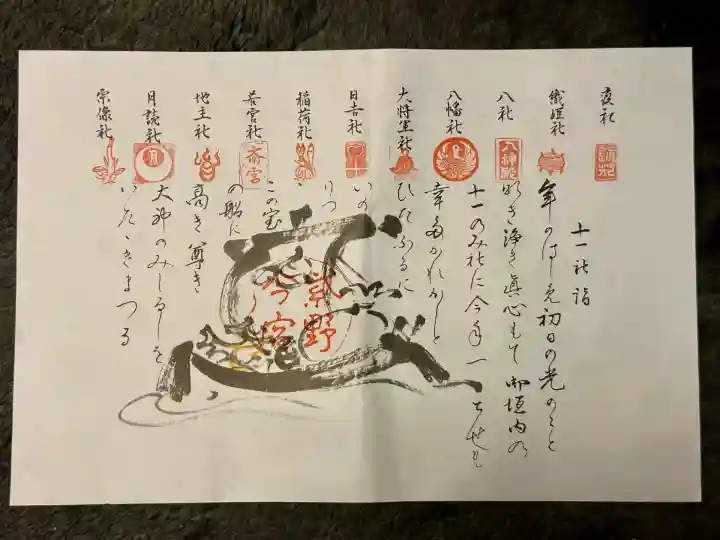 疫社
織姫社
八社
八幡社
大将軍社
日吉社
稲荷社
若宮社
地主社
月読社
宗像社
十一社詣
年のはじめ初日の光のごと
浄き真心もて御垣内の
十一のみ社に今年一とせも
幸多かれかしと
ひたぶるに
いのりつゝ
この宝
の船に
高き尊き
大神のみしるしを
いたゞきまつる
紫野
今宮
八神殿
斎宮
月